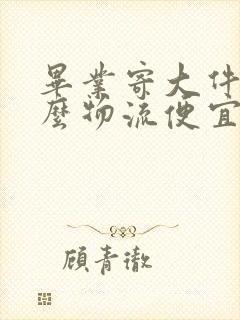 畢業寄大件
麼物流便宜
顧青澈